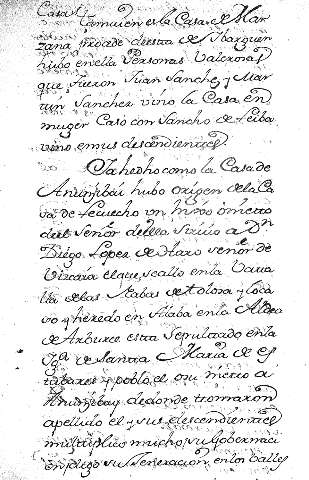 Casa y
Tamuien es la Casa de Mar
zana procede desta de Ibarguen
hubo en ella Personas Valerosas
que fueron Juan Sanchez y Mar
tin Sanchez vino la Casa en
muger Caso con Sancho de Leiba
vino en sus descendientes.
Ya hedho como la Casa de
hubo origen de la Ca
sa de un
del Señor della a Dn
Diego Lopez de Haro señor de
Vizcaia el que se allo en la Vata
lla de las Nabas de Tolosa y
so y heredo en Alaba en la Aldea
de esta Sepultado en la
Iga de Santa Maria de es
tabarez y poblo el
de donde tomaron
apellido el y sus descendientes
multiplico mucho su
en su Generacion en los Valles